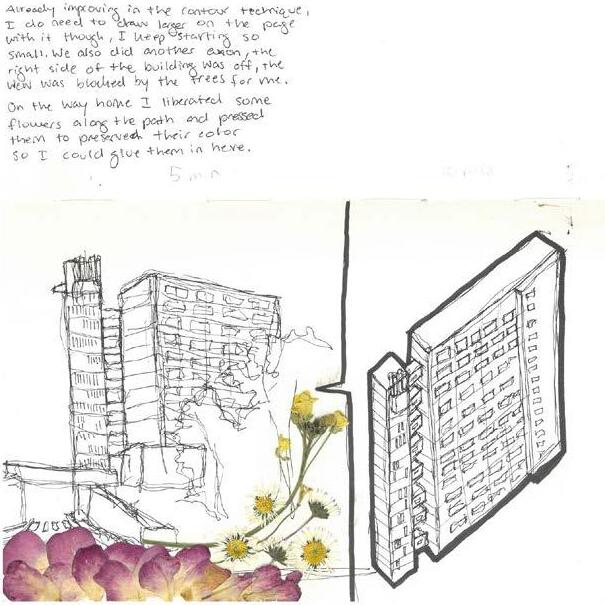 Already improving in the contour technique,
I do need to draw larger on the page
with it though, I keep starting so
small. We also did another axon, the
right side of the building was off, the
view was blocked by the trees for me.
On the way home I liberated some
flowers along the path and pressed
them to preserved their color
so I could glue them in here.
5 min